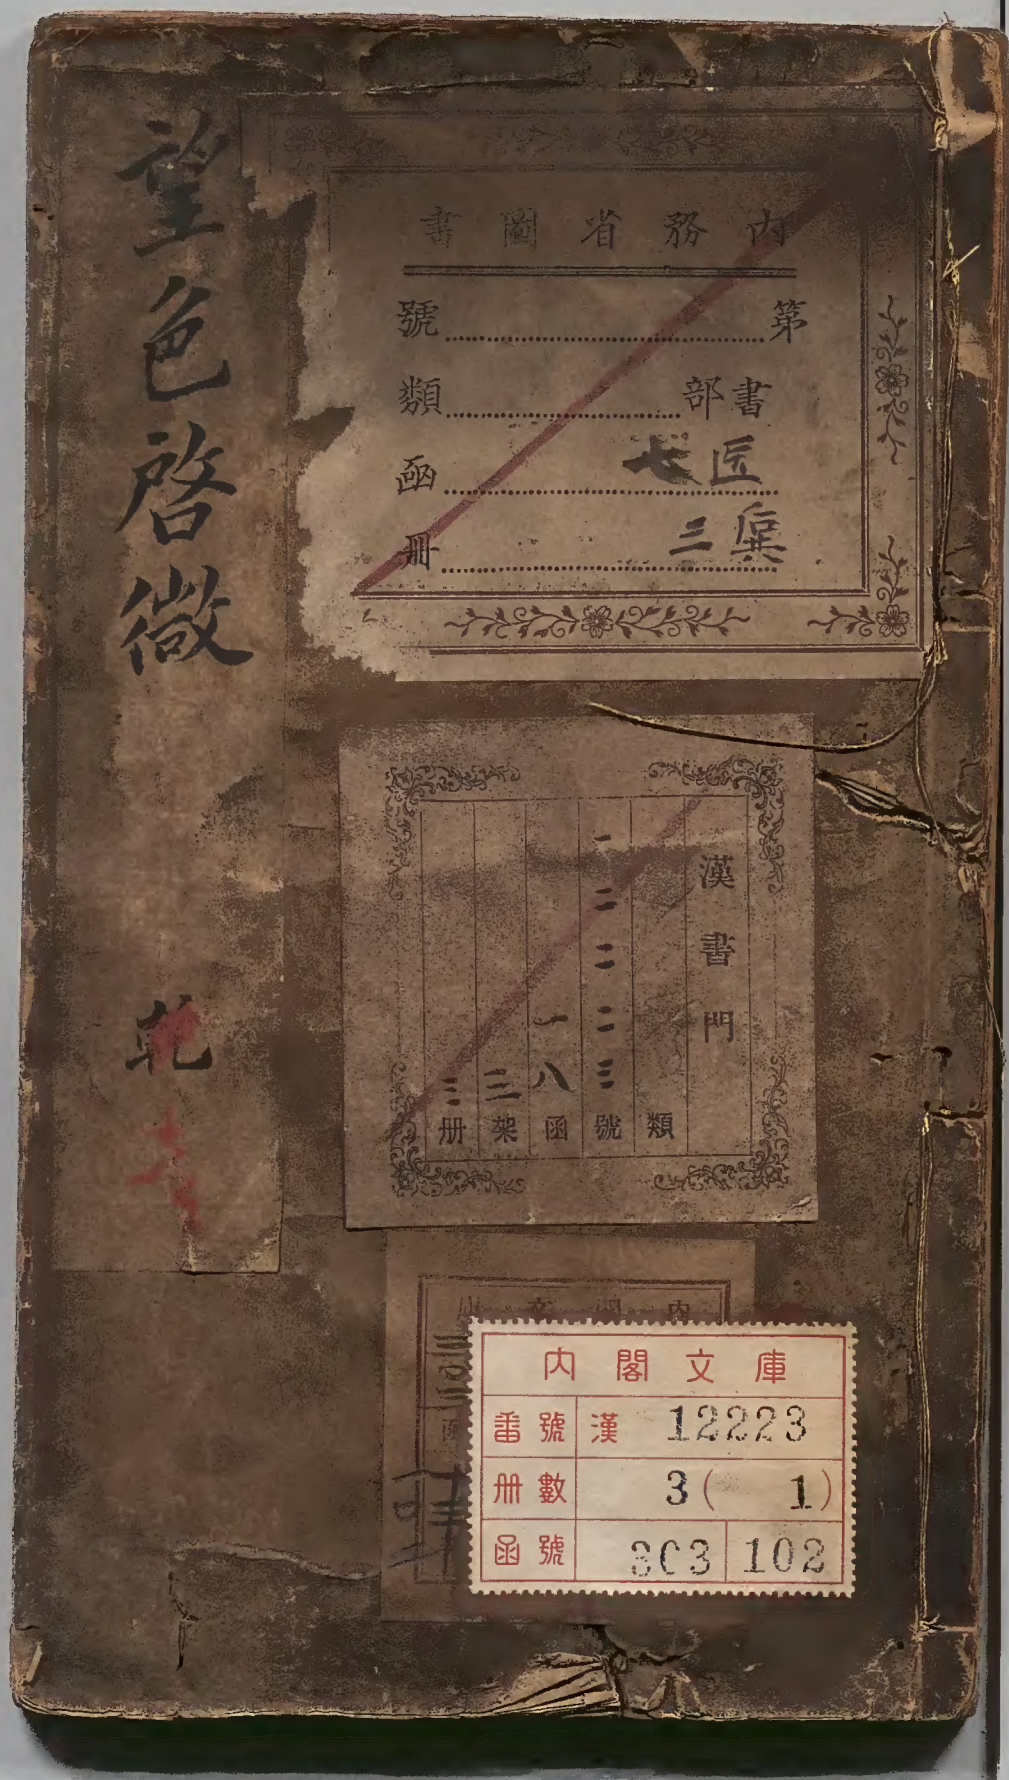 望色啓微
乾
內務省圖書
第號
書部類
医七函
巽三冊
漢書門
類
一二二二三號
一八函
三架
三冊
內閣文庫
番號 漢 12223
冊數 3(1)
函號 303 102